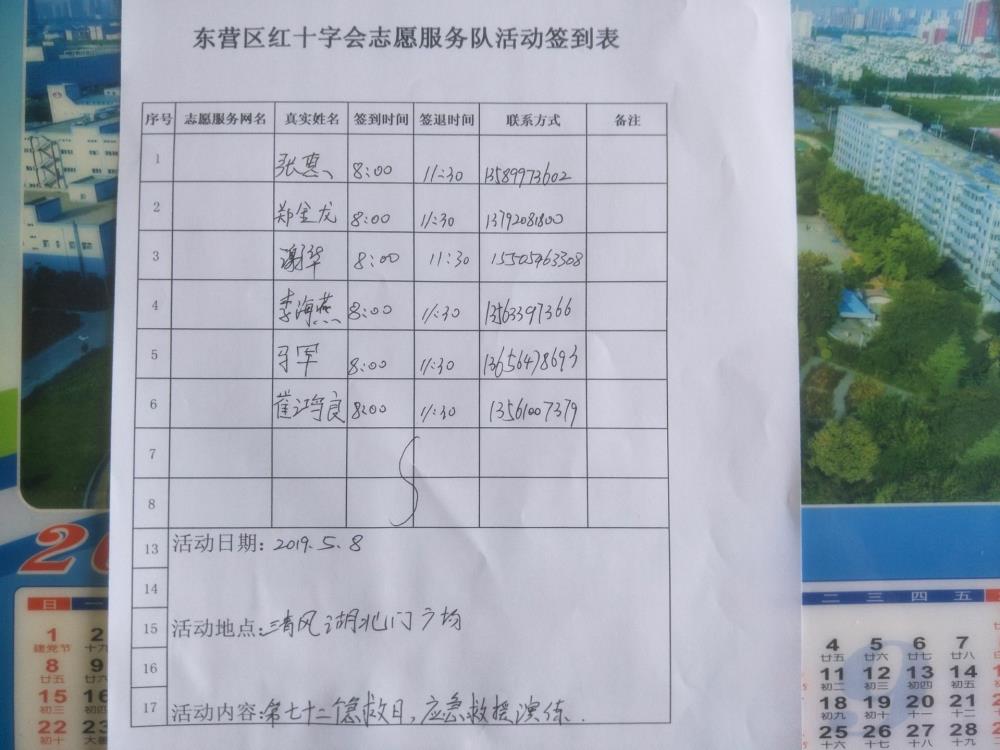 东营区红十字会志愿服务队活动签到表
序号 志愿服务网名 真实姓名 签到时间 签退时间 联系方式 备注
1 张惠 8:00 11:30 13589973602
2 郑金龙 8:00 11:30 13792081800
3 谢华 8:00 11:30 15505463308
4 李海燕 8:00 11:30 13563397366
5 马军 8:00 11:30 13656478693
6 崔均良 8:00 11:30 13561007379
7
8
13 活动日期: 2019.5.8
14
15 活动地点: 清风湖北门广场
16
17 活动内容: 第七十二个急救日,应急救援演练.
日 一
1 2
建党节 十九
8 9
廿五
15 16
初三
22 23
初十 大暑
二 三 四 五
4 5 6 7
廿五 廿六 廿七 廿八
11 12 13 14
初二 初三 初四 初五
18 19 20 21
初九 初十 十一 十二
25 26 27 28
十六 十七 十八 十九